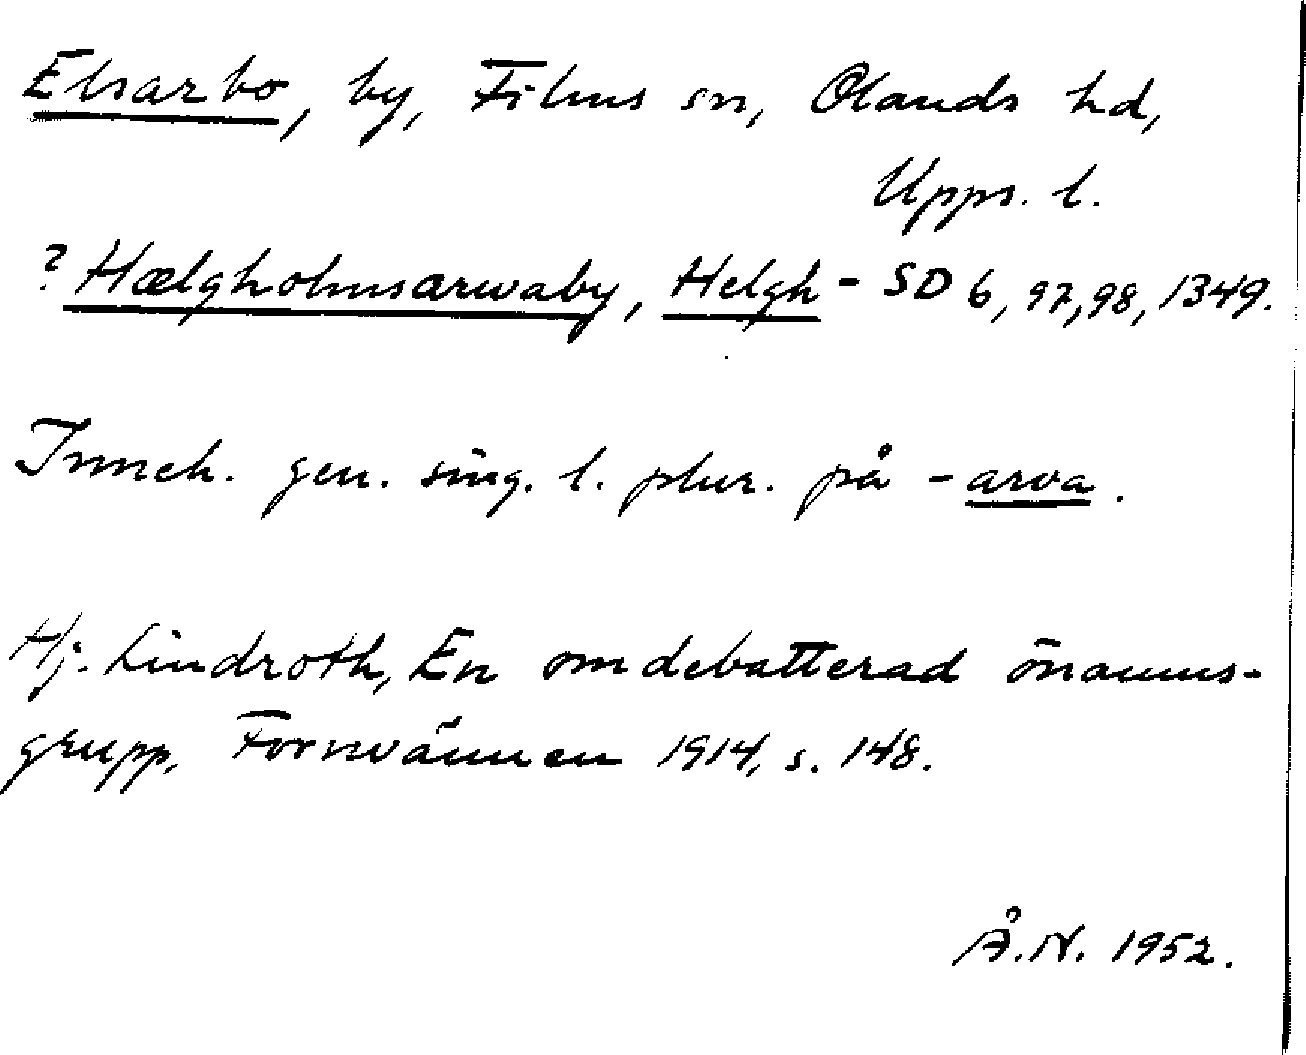 Elsarbo, by, Films sn, Olands hd,
Upps. l.
? Hælgholmsarwaby, Helgh- SD 6, 97, 98, 1349.
Inneh. gen. sing. l. plur. på -arva.
Hj. Lindroth, En omdebatterad önamns-
grupp, Fornvännen 1914, s. 148.
Å.N. 1952.